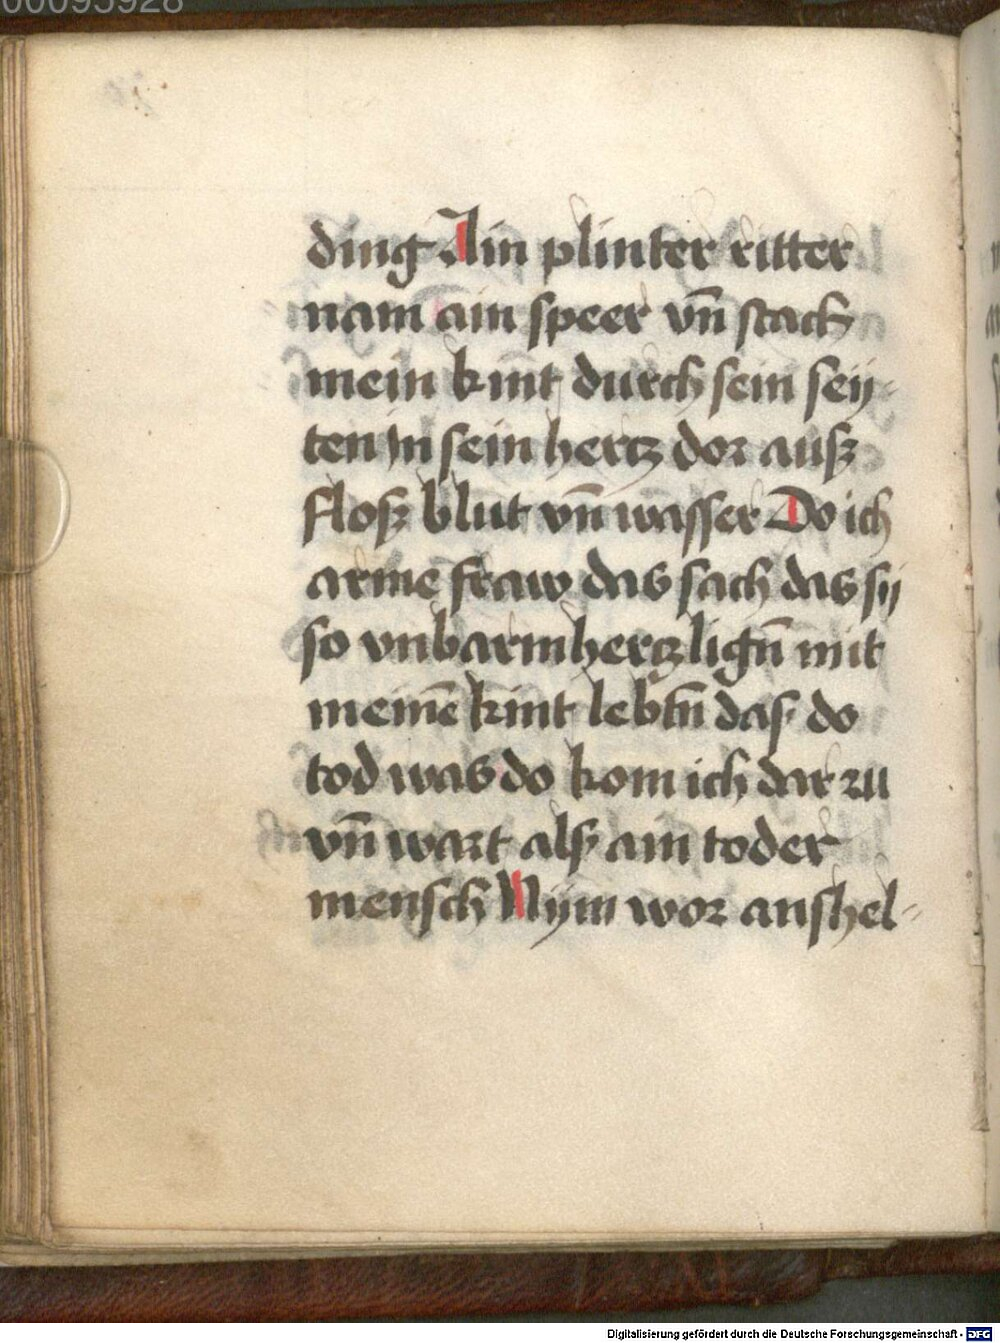 00095928
ding Ain plinter ritter
nam ain speer vn̄ stach
mein kint durch sein sey-
ten jn sein hertz dor ausz
flosz blut vn̄ wasser Do ich
arme fraw das sach das sy
so vnbarmhertzlign̄ mit
meinē kint lebtn̄ das do
tod was do kom ich dar zu
vn̄ wart als ain toder
mensch Nym wor anshel-
Digitalisierung gefördert durch die Deutsche Forschungsgemeinschaft - DFG